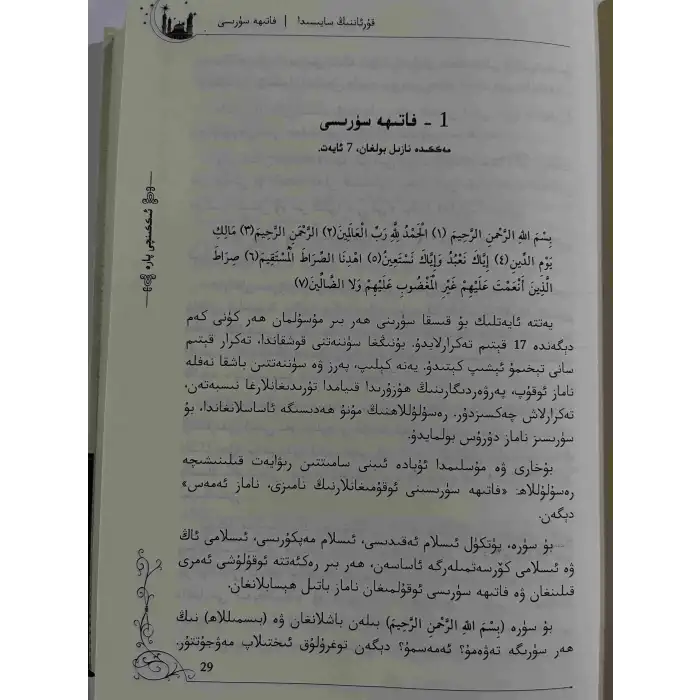 قۇرئاننىڭ سايىسىدا | فاتىھە سۈرىسى
1 - فاتىھە سۈرىسى
مەككىدە نازىل بولغان، 7 ئايەت.
ئىككىنچى پارە
بِسْمِ اللهِ الرَّحْمنِ الرَّحِيمَ (١) الْحَمْدُ لِلَّهِ رَبِّ الْعَالَمِينَ(٢) الرَّحْمَنِ الرَّحِيمِ(٣) مَالِكِ
يَوْمِ الدِّينِ(٤) إِيَّاكَ نَعْبُدُ وَإِيَّاكَ نَسْتَعِينُ(٥) اهْدِنَا الصِّرَاطَ الْمُسْتَقِيمَ(٦) صِرَاطَ
الَّذِينَ أَنْعَمْتَ عَلَيْهِمْ غَيْرِ الْمَغْضُوبِ عَلَيْهِمْ وَلا الضَّالِّينَ(٧)
يەتتە ئايەتلىك بۇ قىسقا سۈرىنى ھەر بىر مۇسۇلمان ھەر كۈنى كەم
دېگەندە 17 قېتىم تەكرارلايدۇ. بۇنىڭغا سۈننەتنى قوشقاندا، تەكرار قېتىم
سانى تېخىمۇ ئېشىپ كېتىدۇ. يەنە كېلىپ، پەرز ۋە سۈننەتتىن باشقا نەفلە
ناماز ئوقۇپ، پەرۋەردىگارىنىڭ ھۇزۇرىدا قىيامدا تۇرىدىغانلارغا نىسبەتەن،
تەكرارلاش چەكسىزدۇر. رەسۇلۇللاھنىڭ مۇنۇ ھەدىسىگە ئاساسلانغاندا، بۇ
سۈرىسىز ناماز دۇرۇس بولمايدۇ.
بۇخارى ۋە مۇسلىمدا ئۇبادە ئىبنى سامىتتىن رىۋايەت قىلىنىشىچە
رەسۇلۇللاھ: «فاتىھە سۈرىسىنى ئوقۇمىغانلارنىڭ نامىزى، ناماز ئەمەس»
دېگەن.
بۇ سۈرە، پۈتكۈل ئىسلام ئەقىدىسى، ئىسلام مەپكۇرىسى، ئىسلامى ئاڭ
ۋە ئىسلامى كۆرسەتمىلەرگە ئاساسەن، ھەر بىر رەكئەتتە ئوقۇلۇشى ئەمرى
قىلىنغان ۋە فاتىھە سۈرىسى ئوقۇلمىغان ناماز باتىل ھېسابلانغان.
بۇ سۈرە (بِسْمِ اللهِ الرَّحْمنِ الرَّحِيمَ) بىلەن باشلانغان ۋە (بىسمىللاھ) نىڭ
ھەر سۈرىگە تەۋەمۇ؟ ئەمەسمۇ؟ دېگەن توغرۇلۇق ئىختىلاپ مەۋجۇتتۇر.
29